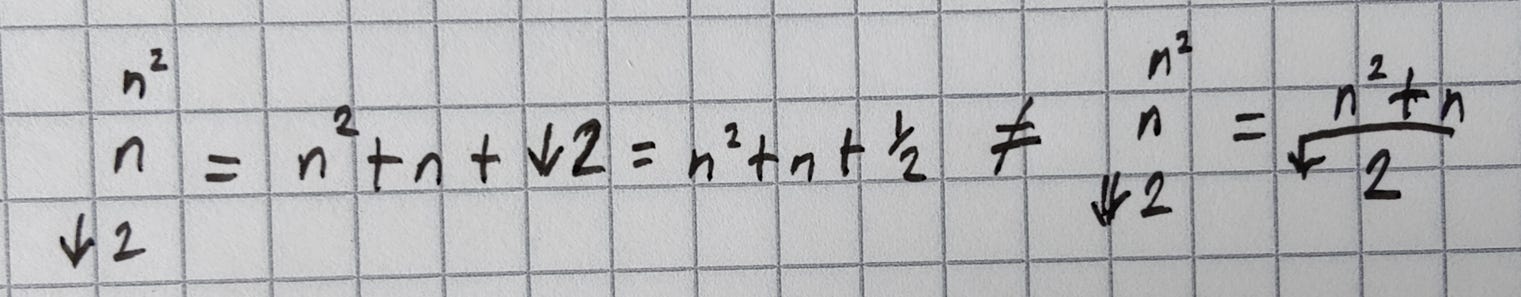 n²
n
↓2
= n² + n + ↓2 = n² + n + ½ ≠
n²
n
⇓2
=
n² + n
↓
2